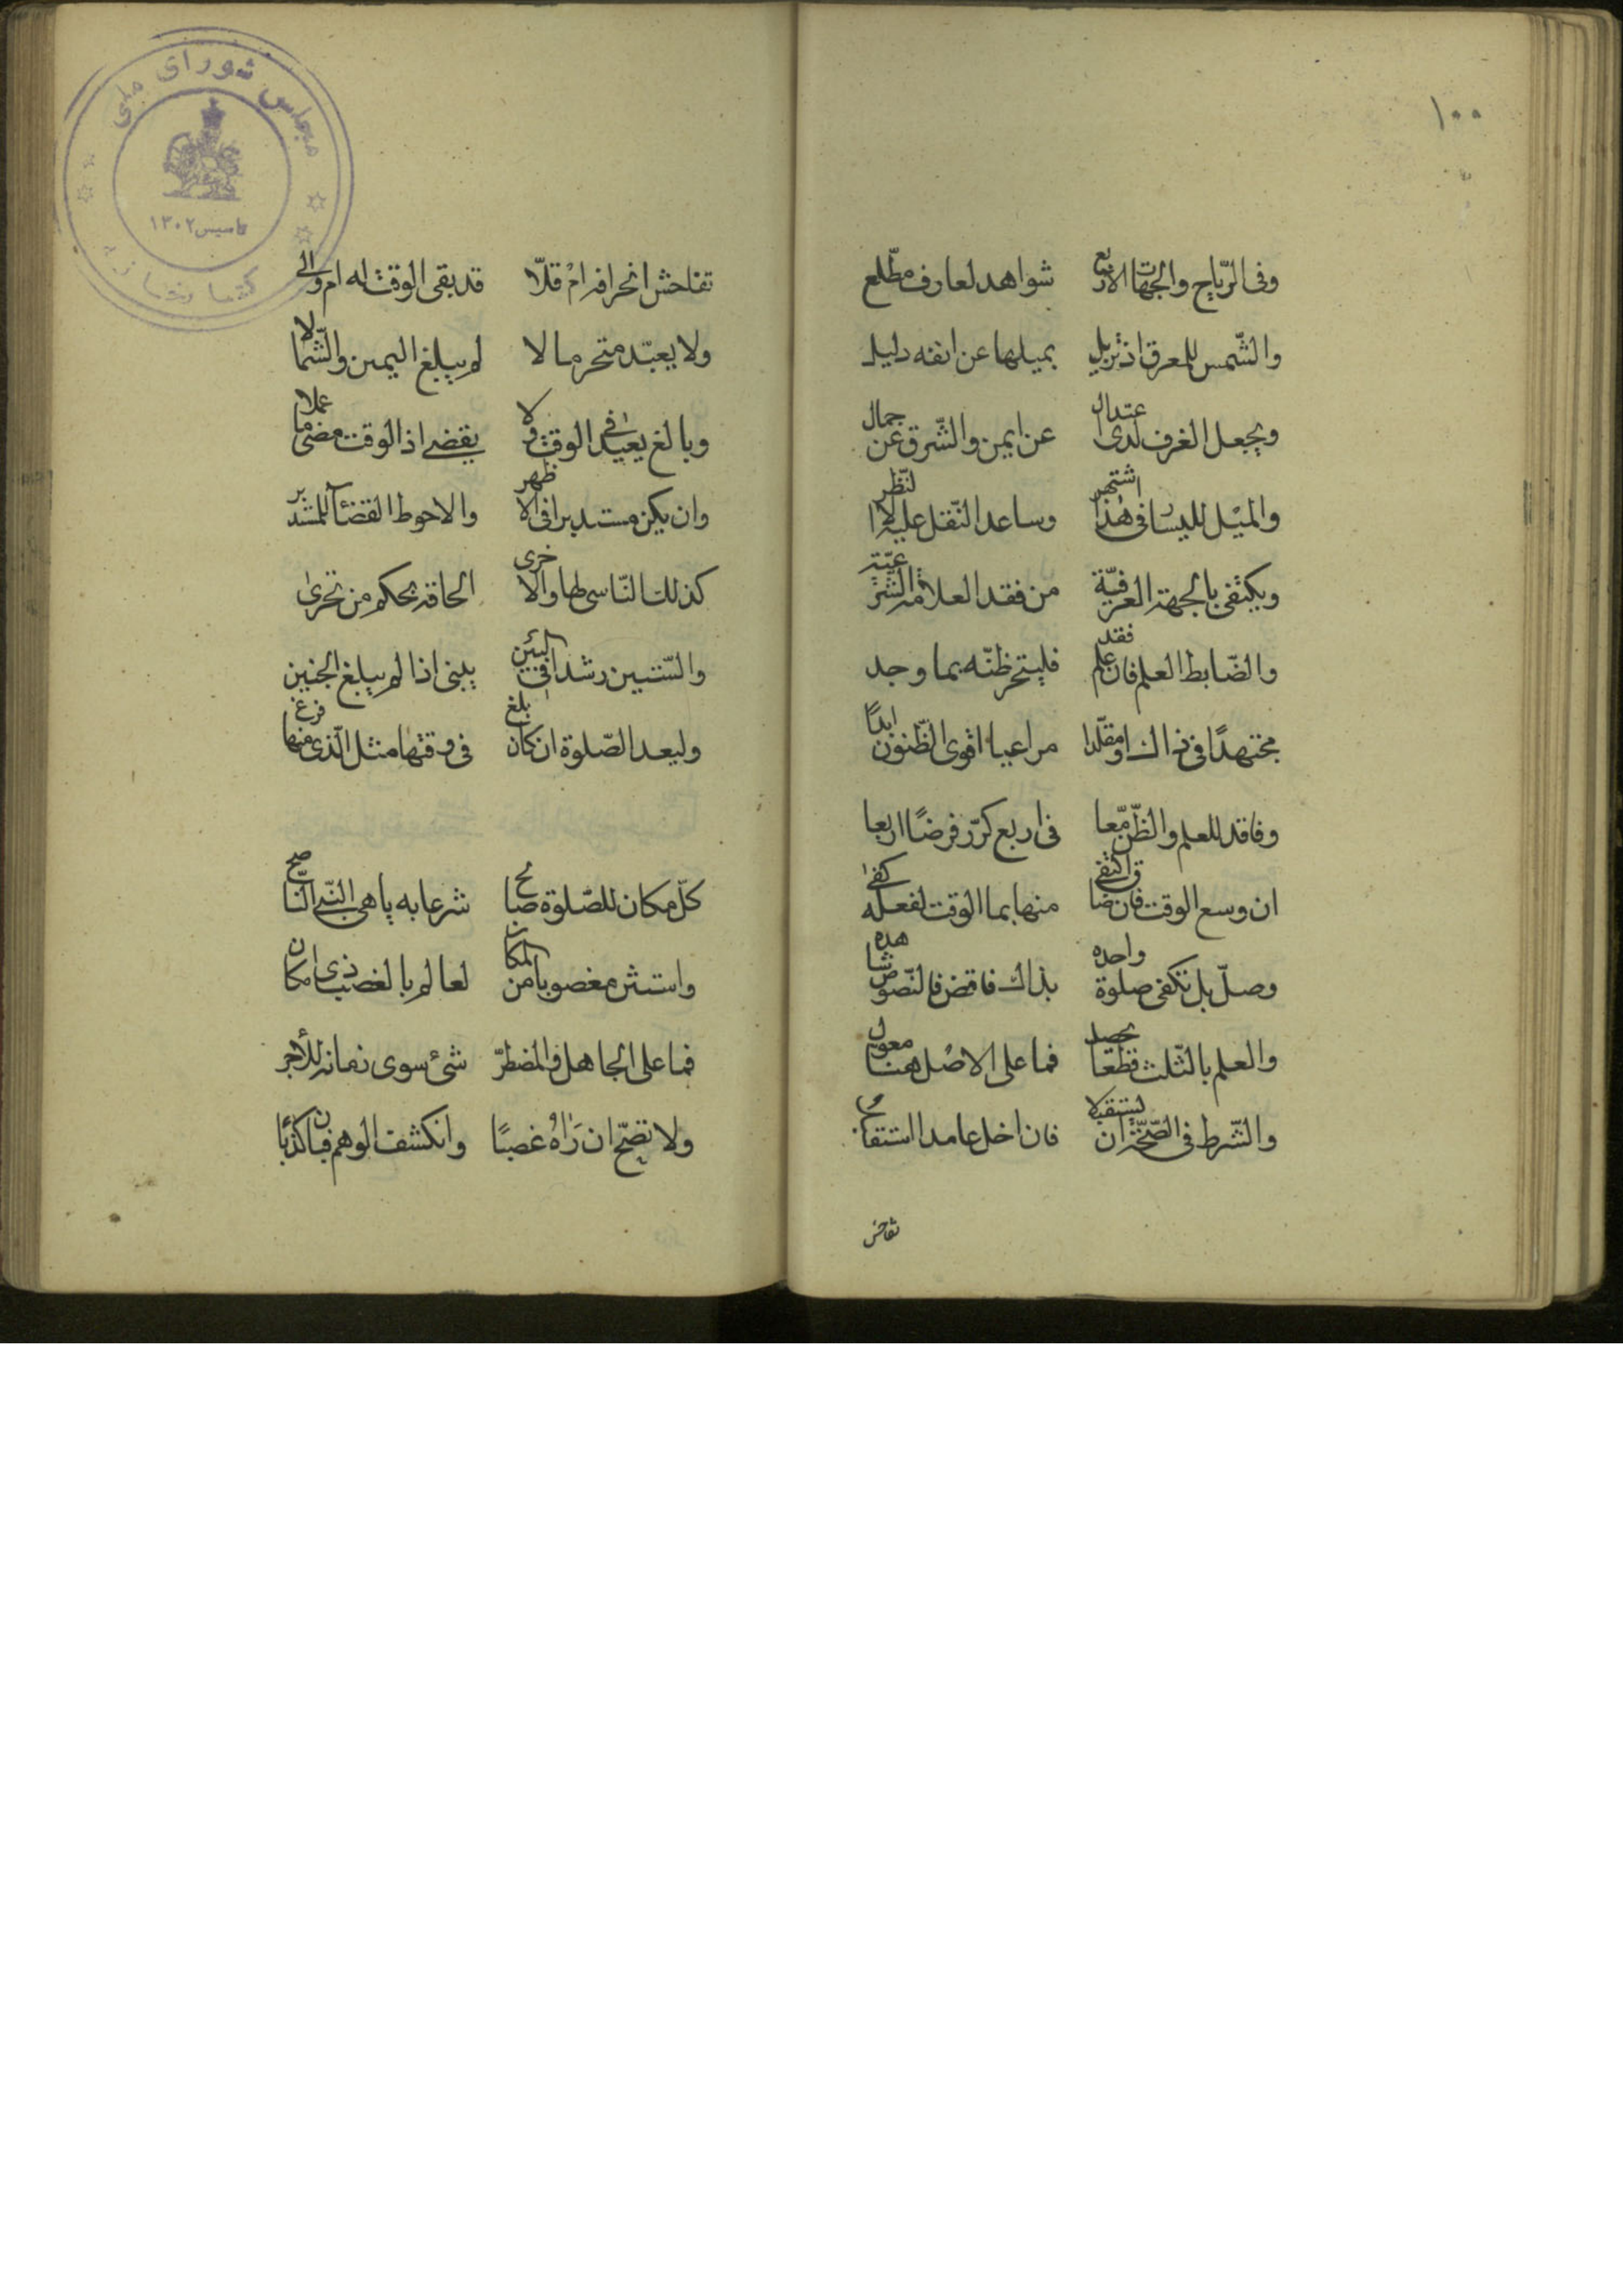 ١٠٠
وفى الرّياح والجهات الاربع شواهد لعارف مطّلع
والشّمس للمعرق اذ تزيل بميلها عن انفه دليل
ويجعل الغرف لدى اعتدال عن ايمن والشّرق عن جمال
والميل لليسار فى هذا اشتهر وساعد النّقل عليه لا النّظر
ويكتفى بالجهة العرفيّة من فقد العلامة الشّرعيّة
والضّابط العلم فان علم فقد فليتحر ظنّه بما وجد
مجتهدًا فى ذاك او مقلّدا مراعيا اقوى الظّنون ابدًا
وفاقد للعلم والظّن معّا فى اربع كرّر فرضًا اربعا
ان وسع الوقت فان ضاق اكتفى منها بما الوقت لفعله كفى
وصلّ بل تكفى صلوة واحده بذاك فاقض فالنّصوص شاهده
والعلم بالثّلث قطعا يحصل فما على الاصل هنا معول
والشّرط فى الصّحّة ان يستقبلا فان اخل عامدا استقا
تفاحش
تفاحش انحرافه ام قلّا قد بقى الوقت له ام ولّى
ولا يعبّد متحر مالا لم يبلغ اليمين والشّمالا
وبالغ يعيد فى الوقت ولا يقضى اذ الوقت مضى ما عملا
وان يكن مستدبرا فى الاظهر والاحوط القضآ للمستدبر
كذلك النّاسى لها والاخرى الحاقه بحكم من تحرى
والسّتبين رشدا فى البين يبنى اذا لم يبلغ الجنبين
وليعد الصّلوة ان كان بلغ فى وقتها مثل الّذى منها فرغ
كلّ مكان للصّلوة صالح شرعا به باهى النّبى النّاصح
واستثن مغصوبا من المكان لعالم بالغصب ذى امكان
فما على الجاهل والمضطرّ شئ سوى ضمانه للأجر
ولا تصحّ ان رَاهُ غصبًا وانكشف الوهم فبان كذبًا
مجلس شورای ملی
تاسیس ١٣٠٢
کتابخانه